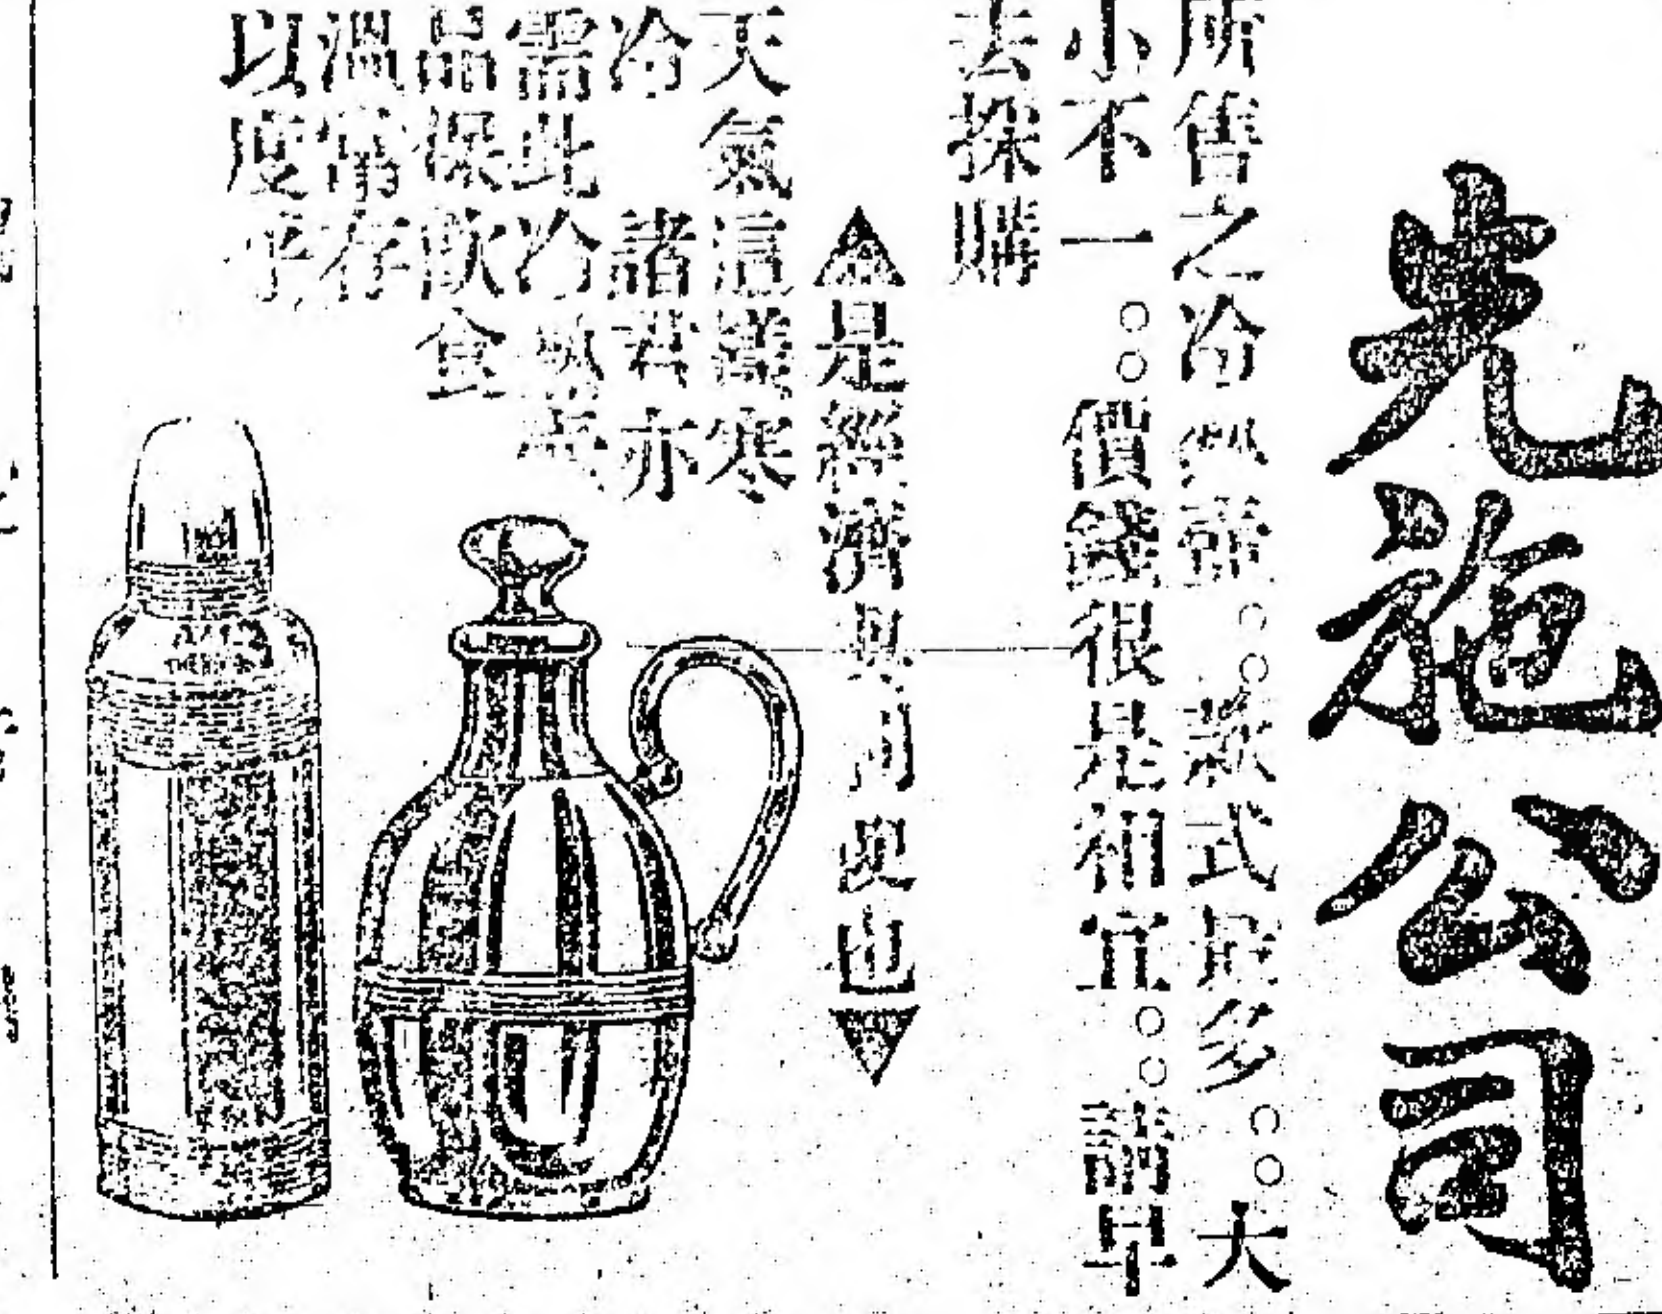 先施公司
所售之冷熱 ○○款式 多○○大
小不一○○價錢很是相宜○○
去採購
▲是經濟 也▼
天氣這樣寒
冷 諸君亦
需此冷熱
品保飲食
溫常存
以度